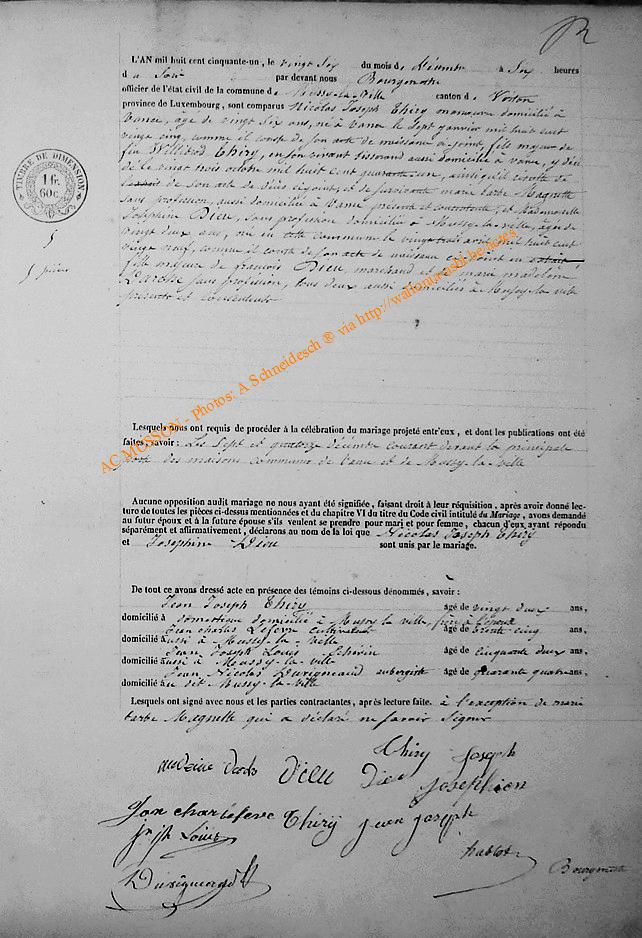 L'AN mil huit cent cinquante-un, le vingt six du mois de Décembre à Six heures
d u Soir par devant nous Bourgmestre
officier de l'état civil de la commune de Mussy-la-Ville canton de Virton
province de Luxembourg, sont comparus Nicolas Joseph Thiry manœuvre domicilié à
Vance, âgé de vingt six ans, né à Vance le sept janvier mil huit cent
vingt cinq, comme il conste de son acte de naissance ci joint, fils majeur de
feu Willibrod Thiry, en son vivant tisserand aussi domicilié à Vance, y décé
dé le vingt trois octobre mil huit cent quarante un, ainsi qu'il résulte de
de son acte de décès ci joint, et de survivante marie barbe Magnette
sans profession, aussi domiciliée à Vance présente et consentante, et Mademoiselle
Josephine Dieu, sans profession domiciliée à Mussy-la-ville, âgée de
vingt deux ans, née en cette commune le vingt trois avril mil huit cent
vingt neuf, comme il conste de son acte de naissance ci joint en extrait
fille majeure de françois Dieu, marchand et de marie madeleine
sans profession, tous deux aussi domiciliés à Mussy-la-ville
présents et consentants
TIMBRE DE DIMENSION
1 fr.
60 c.
5
5 pièces
Lesquels nous ont requis de procéder à la célébration du mariage projeté entr'eux, et dont les publications ont été
faites, savoir : Les Sept et quatorze décembre courant devant la principale
porte des maisons communes de Vance et de Mussy-la-ville
Aucune opposition audit mariage ne nous ayant été signifiée, faisant droit à leur réquisition, après avoir donné lec-
ture de toutes les pièces ci-dessus mentionnées et du chapitre VI du titre du Code civil intitulé du Mariage, avons demandé
au futur époux et à la future épouse s'ils veulent se prendre pour mari et pour femme, chacun d'eux ayant répondu
séparément et affirmativement, déclarons au nom de la loi que Nicolas Joseph Thiry
et Josephine Dieu sont unis par le mariage.
De tout ce avons dressé acte en présence des témoins ci-dessous dénommés, savoir :
Jean Joseph Thiry âgé de vingt deux ans,
domicilié à domestique domicilié à Mussy la ville, frère à l'époux
Jean charles Lefevre cultivateur âgé de trente cinq ans,
domicilié aussi à Mussy-la-ville
Jean Joseph Louis âgé de cinquante deux ans,
domicilié aussi à Mussy-la-ville
Jean Nicolas aubergiste âgé de quarante quatre ans,
domicilié au dit Mussy-la-ville
Lesquels ont signé avec nous et les parties contractantes, après lecture faite. à l'exception de marie
barbe Magnette qui a déclaré ne savoir signer
Thiry joseph
Dieu Dieu josephien
Jean char lefevre Thiry jean joseph
Louis
hablot
Bourgmestre
AC MUSSON - Photos: A Schneidesch ® via http://wallonia-asbl.be/actes